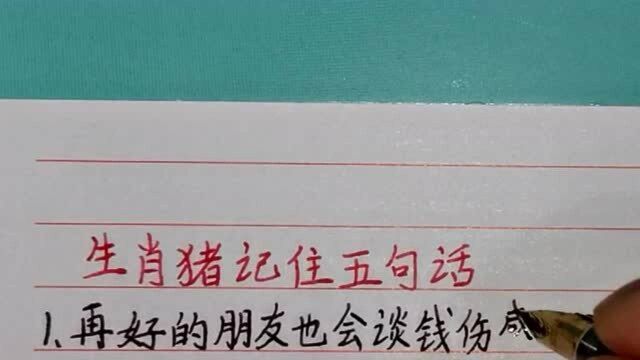 生肖猪记住五句话
1、再好的朋友也会谈钱伤感